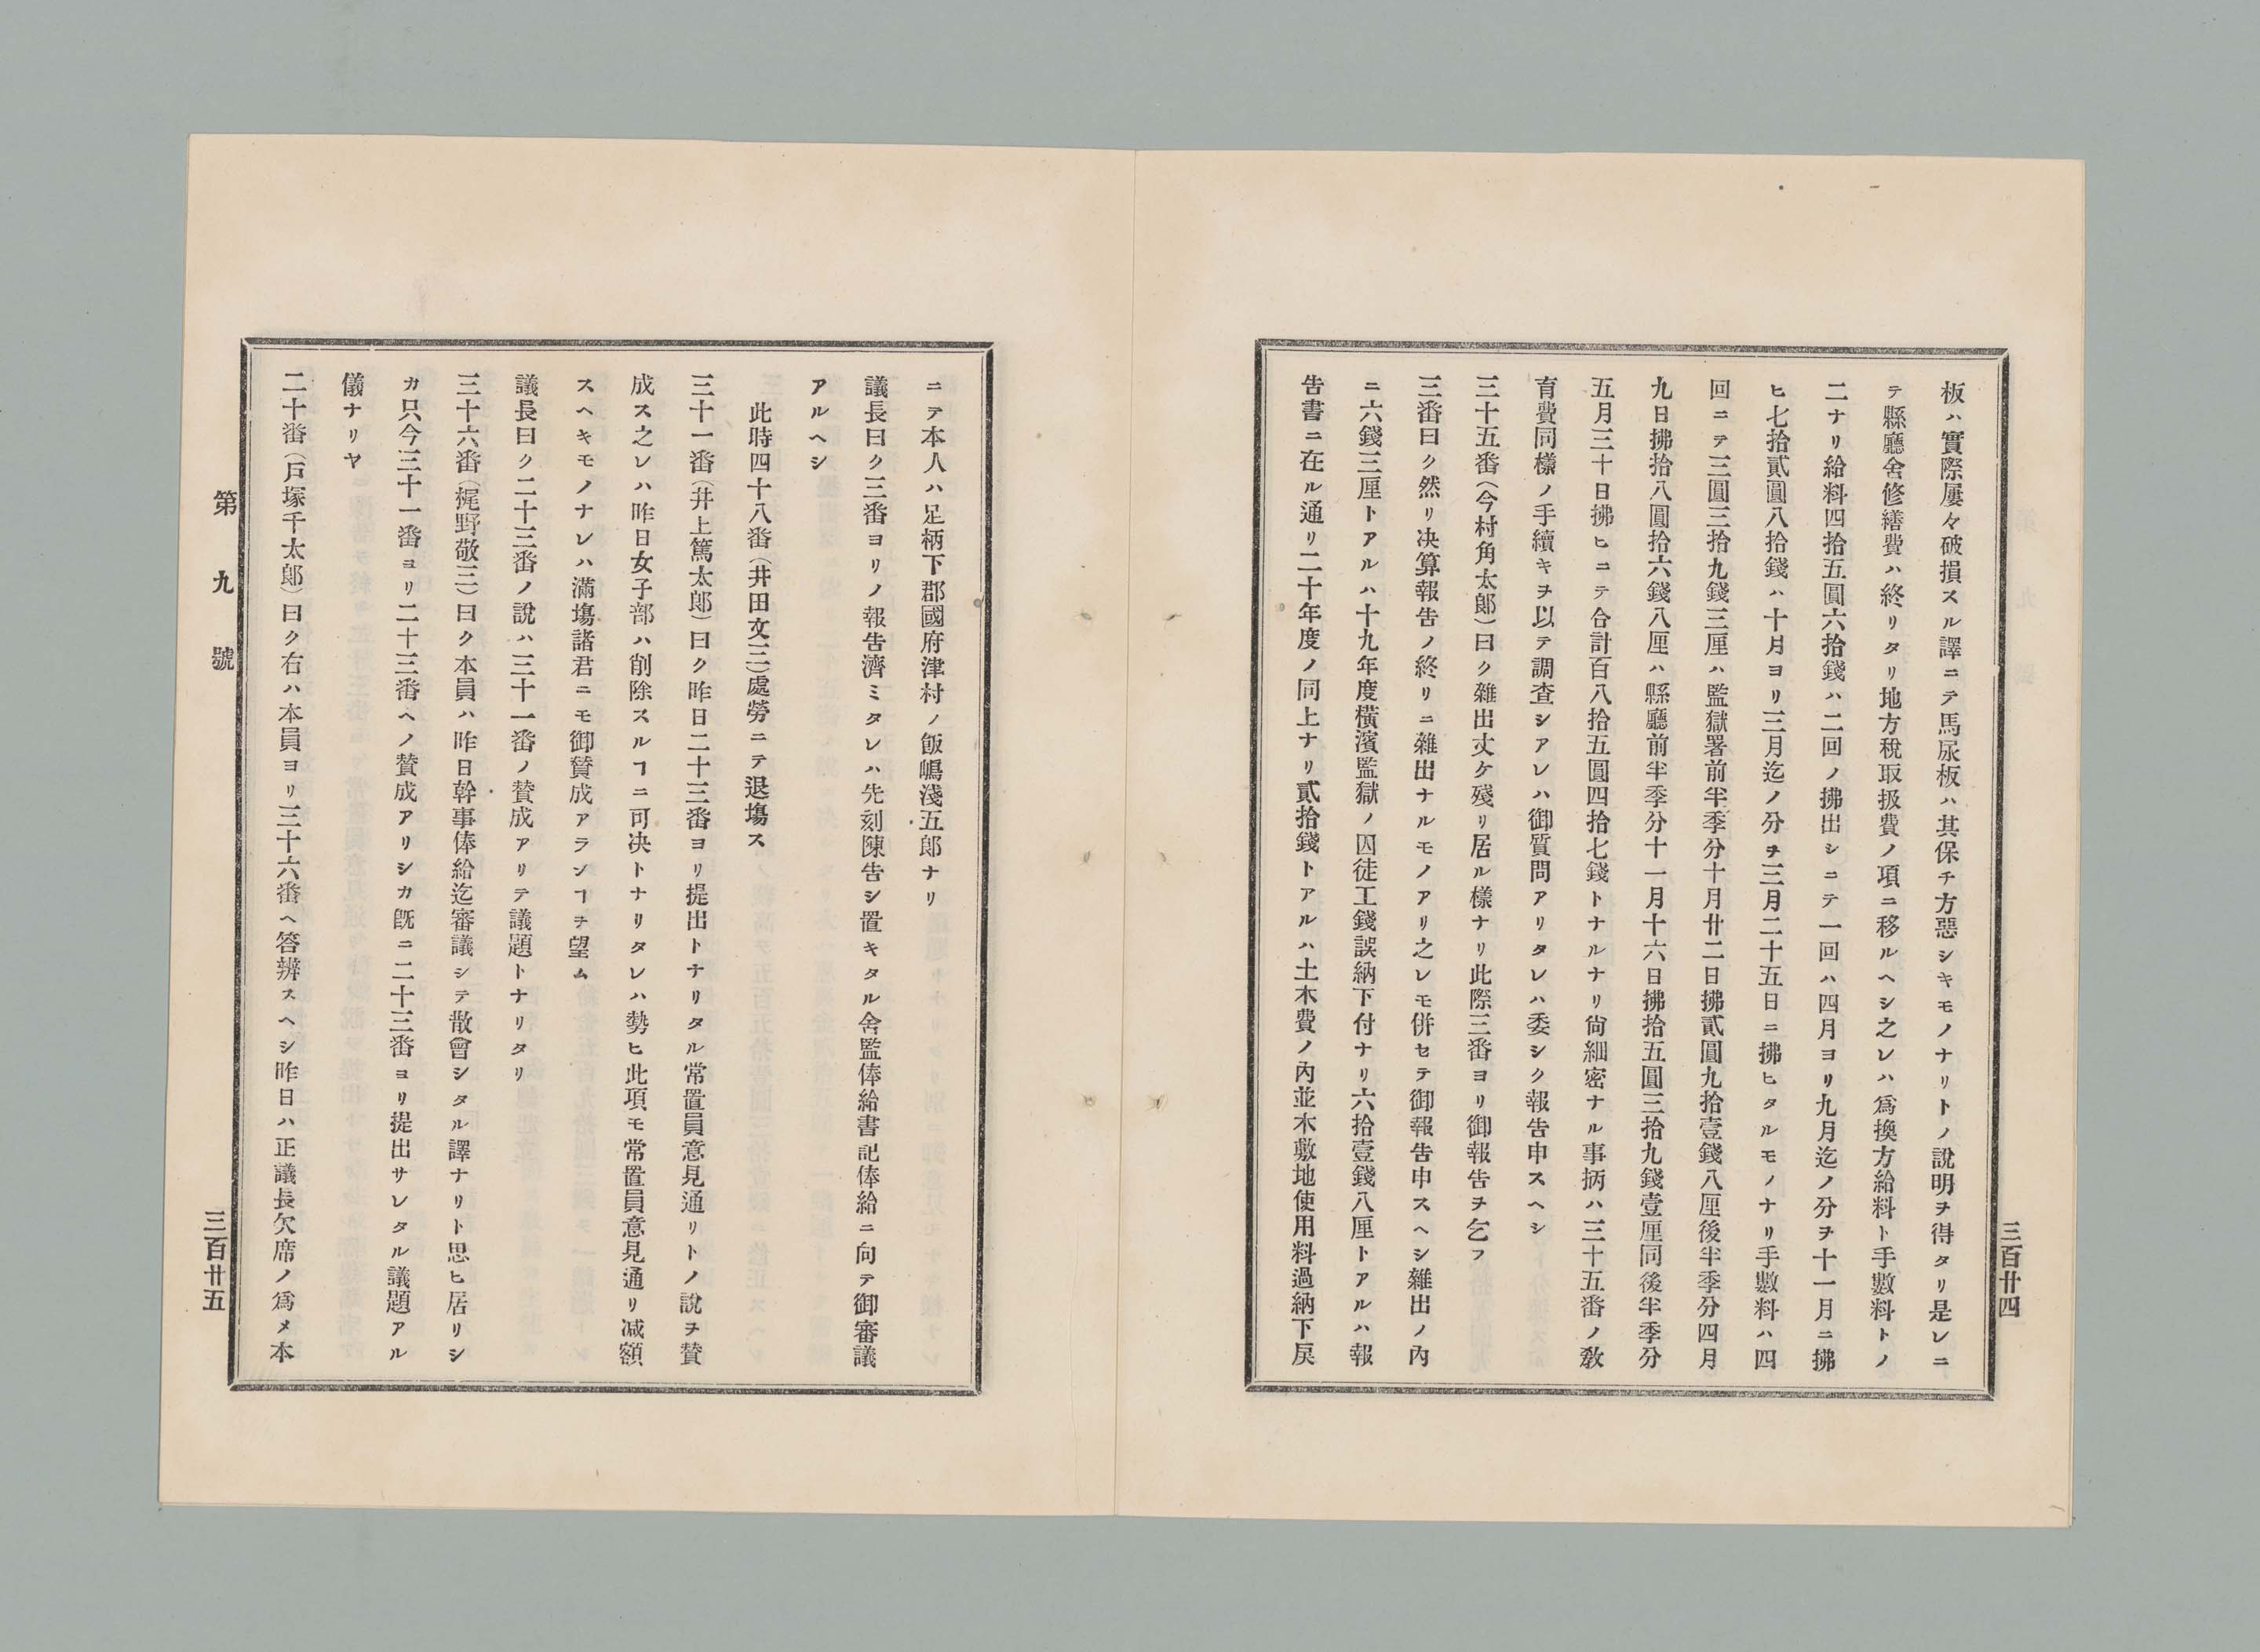 三百廿四
板ハ實際屢々破損スル譯ニテ馬尿板ハ其保チ方惡シキモノナリトノ說明ヲ得タリ是レニ
テ縣廳舍修繕費ハ終リタリ地方稅取扱費ノ項ニ移ルヘシ之レハ爲換方給料ト手數料トノ
二ナリ給料四拾五圓六拾錢ハ二回ノ拂出シニテ一回ハ四月ヨリ九月迄ノ分ヲ十一月ニ拂
ヒ七拾貳圓八拾錢ハ十月ヨリ三月迄ノ分ヲ三月二十五日ニ拂ヒタルモノナリ手數料ハ四
回ニテ三圓三拾九錢三厘ハ監獄署前半季分十月廿二日拂貳圓九拾壹錢八厘後半季分四月
九日拂拾八圓拾六錢八厘ハ縣廳前半季分十一月十六日拂拾五圓三拾九錢壹厘同後半季分
五月三十日拂ヒニテ合計百八拾五圓四拾七錢トナルナリ尙細密ナル事柄ハ三十五番ノ敎
育費同樣ノ手續キヲ以テ調査シアレハ御質問アリタレハ委シク報告申スヘシ
三十五番（今村角太郎）曰ク雜出丈ケ殘リ居ル樣ナリ此際三番ヨリ御報告ヲ乞フ
三番曰ク然リ决算報告ノ終リニ雜出ナルモノアリ之レモ併セテ御報告申スヘシ雜出ノ內
ニ六錢三厘トアルハ十九年度橫濱監獄ノ囚徒工錢誤納下付ナリ六拾壹錢八厘トアルハ報
告書ニ在ル通リ二十年度ノ同上ナリ貳拾錢トアルハ土木費ノ內並木敷地使用料過納下戾
ニテ本人ハ足柄下郡國府津村ノ飯嶋淺五郎ナリ
議長曰ク三番ヨリノ報告濟ミタレハ先刻陳告シ置キタル舍監俸給書記俸給ニ向テ御審議
アルヘシ
此時四十八番（井田文三）處勞ニテ退塲ス
三十一番（井上篤太郎）曰ク昨日二十三番ヨリ提出トナリタル常置員意見通リトノ說ヲ贊
成ス之レハ昨日女子部ハ削除スルヿニ可决トナリタレハ勢ヒ此項モ常置員意見通リ减額
スヘキモノナレハ滿塲諸君ニモ御贊成アランヿヲ望ム
議長曰ク二十三番ノ說ハ三十一番ノ贊成アリテ議題トナリタリ
三十六番（梶野敬三）曰ク本員ハ昨日幹事俸給迄審議シテ散會シタル譯ナリト思ヒ居リシ
カ只今三十一番ヨリ二十三番ヘノ贊成アリシカ旣ニ二十三番ヨリ提出サレタル議題アル
儀ナリヤ
二十番（戸塚千太郎）曰ク右ハ本員ヨリ三十六番ヘ答辨スヘシ昨日ハ正議長欠席ノ爲メ本
第九號
三百廿五